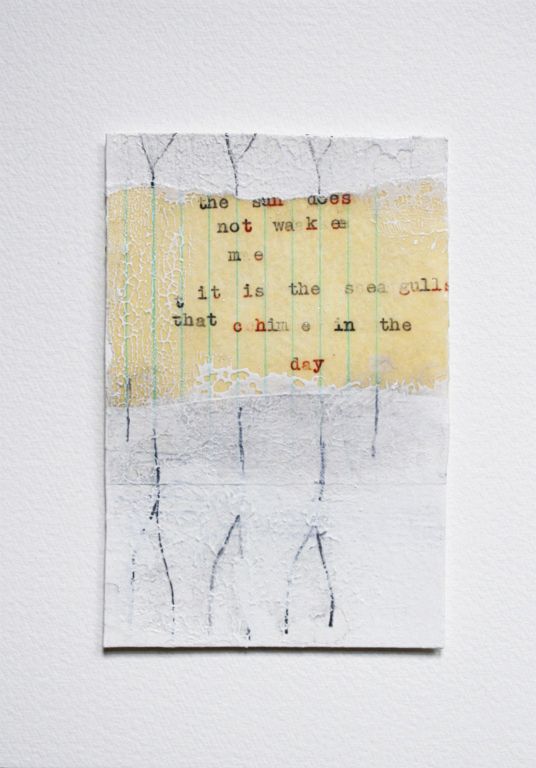 the sun does
not wake
me
it is the seagulls
that chime in the
day